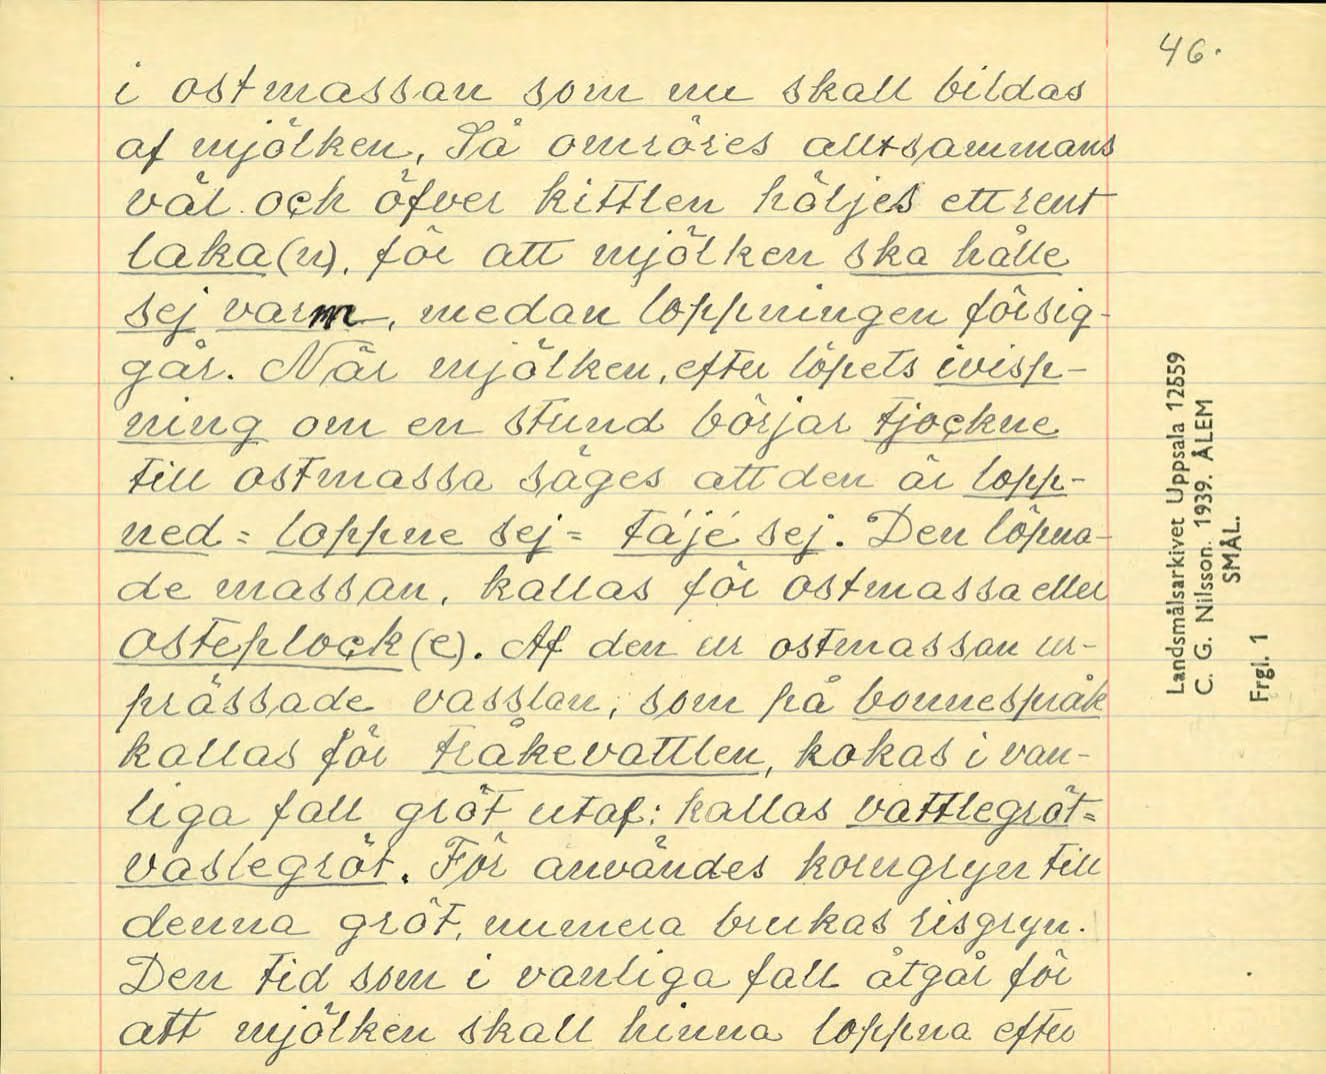 46.
i ostmassan som nu skall bildas
af mjölken, Så omröres alltsammans
väl och öfver kittlen höljes ett rent
laka(n), för att mjölken ska hålle
sej varm, medan loppningen försig-
går. När mjölken, efter löpets ivisp-
ning om en stund börjar tjockne
till ostmassa säges att den är lopp-
ned = loppne sej = täjé sej. Den löpna-
de massan, kallas för ostmassa eller
osteplock(e). Af den ur ostmassan ur-
prässade vasslan, som på bonnespråk
kallas för tråkevattlen, kokas i van-
liga fall gröt utaf: kallas vattlegröt =
vaslegröt. För användes korngryn till
denna gröt, numera brukas risgryn.
Den tid som i vanliga fall åtgår för
att mjölken skall hinna loppna efter
Landsmålsarkivet Uppsala 12559
C. G. Nilsson. 1939. ÅLEM
SMÅL.
Frgl. 1